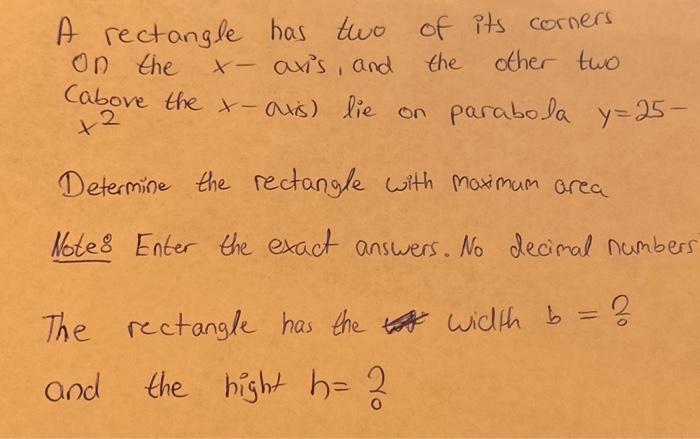 A rectangle has two of its corners
on the x- axis, and the other two
(above the x-axis) lie on parabola y=25-
x²
Determine the rectangle with maximum area
Note: Enter the exact answers. No decimal numbers
The rectangle has the width b = ?
and the hight h= ?